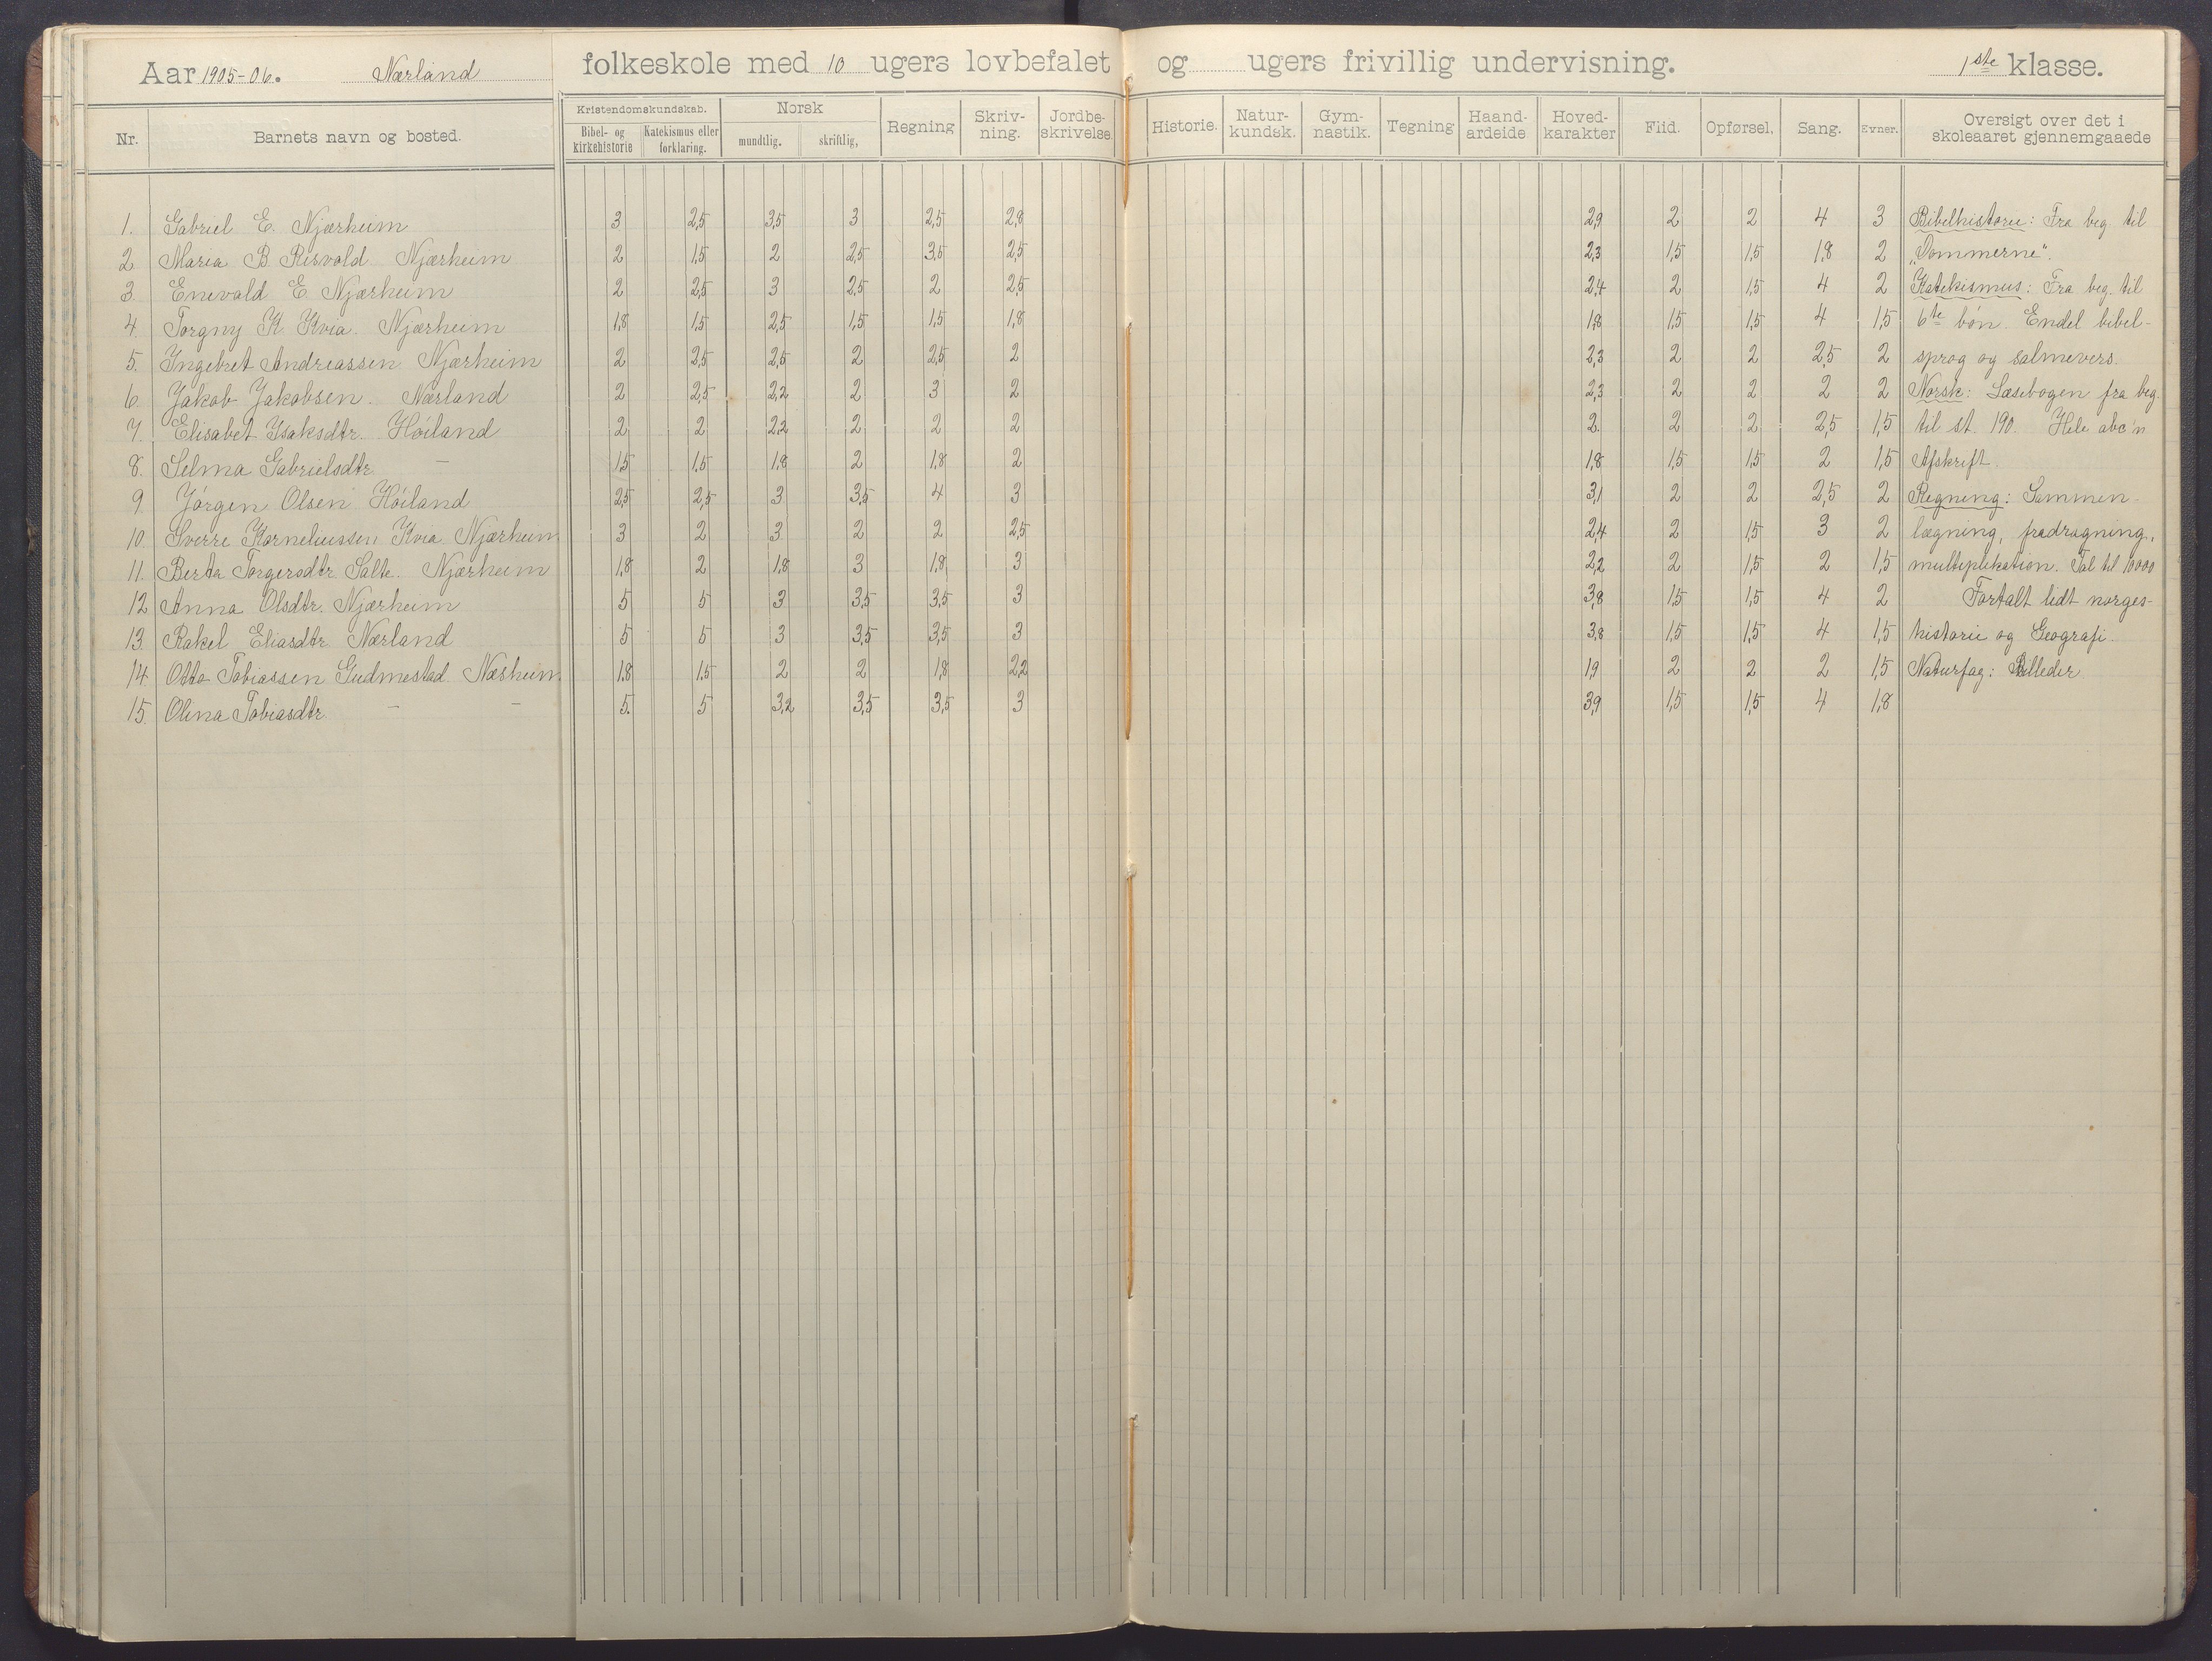 Aar 1905-06. Nærland folkeskole med 10 ugers lovbefalet og ugers frivillig undervisning. 1ste klasse.
Nr. Barnets navn og bosted. Kristendomskundskab. Bibel- og kirkehistorie Katekismus eller forklaring. Norsk mundtlig. skriftlig, Regning Skriv-ning. Jordbe-skrivelse. Historie. Natur-kundsk. Gym-nastik. Tegning Haand-ardeide Hoved-karakter Flid. Opførsel. Sang. Evner. Oversigt over det i skoleaaret gjennemgaaede
1. Gabriel E. Njærheim 3 2,5 3,5 3 2,5 2,8 2,9 2 2 4 3 Bibelhistorie: Fra beg til
2 Maria B. Risvold Njærheim 2 1,5 2 2,5 3,5 2,5 2,3 1,5 1,5 1,8 2 "Dommerne".
3. Enevald E. Njærheim 2 2,5 3 2,5 2 2,5 2,4 2 1,5 4 2 Katekismus: Fra beg. til
4. Torgny K. Kvia. Njærheim 1,8 1,5 2,5 1,5 1,5 1,8 1,8 1,5 1,5 4 1,5 6te bøn. Endel bibel-
5. Ingebret Andreassen Njærheim 2 2,5 2,5 2 2,5 2 2,3 2 2 2,5 2 sprog og salmevers.
6. Jakob Jakobsen. Nærland 2 2,5 2,2 2 3 2 2,3 2 2 2 2 Norsk: Læsebogen fra beg.
7. Elisabet Isaksdtr. Høiland 2 2 2,2 2 2 2 2. 2 2 2,5 1,5 til st. 190. Hele abc'n
8. Selma Gabrielsdtr. — 1,5 1,5 1,8 2 1,8 2 1,8 1,5 1,5 2 1,5 Afskrift.
9. Jørgen Olsen Høiland 2,5 2,5 3 3,5 4 3 3,1 2 2 2,5 2 Regning: Sammen-
10. Sverre Korneliussen Kvia Njærheim 3 2 3 2 2 2,5 2,4 2 1,5 3 2 lægning, fradragning,
11. Berta Torgersdtr Salte. Njærheim 1,8 2 1,8 3 1,8 3 2,2 2 1,5 2 1,5 multiplikation. Tal til 10000
12 Anna Olsdtr. Njærheim 5 5 3 3,5 3,5 3 3,8 1,5 1,5 4 2 Fortalt lidt norges-
13. Rakel Eliasdtr Nærland 5 5 3 3,5 3,5 3 3,8 1,5 1,5 4 1,5 historie og Geografi.
14 Otto Tobiassen Gudmestad. Næsheim. 1.8 1.5 2 2 1,8 2,2 1,9 2 2 2 1,5 Naturfag: Billeder
15. Olina Tobiasdtr — — 5. 5 3,2 3,5 3,5 3 3,9 1,5 1,5 4 1,8